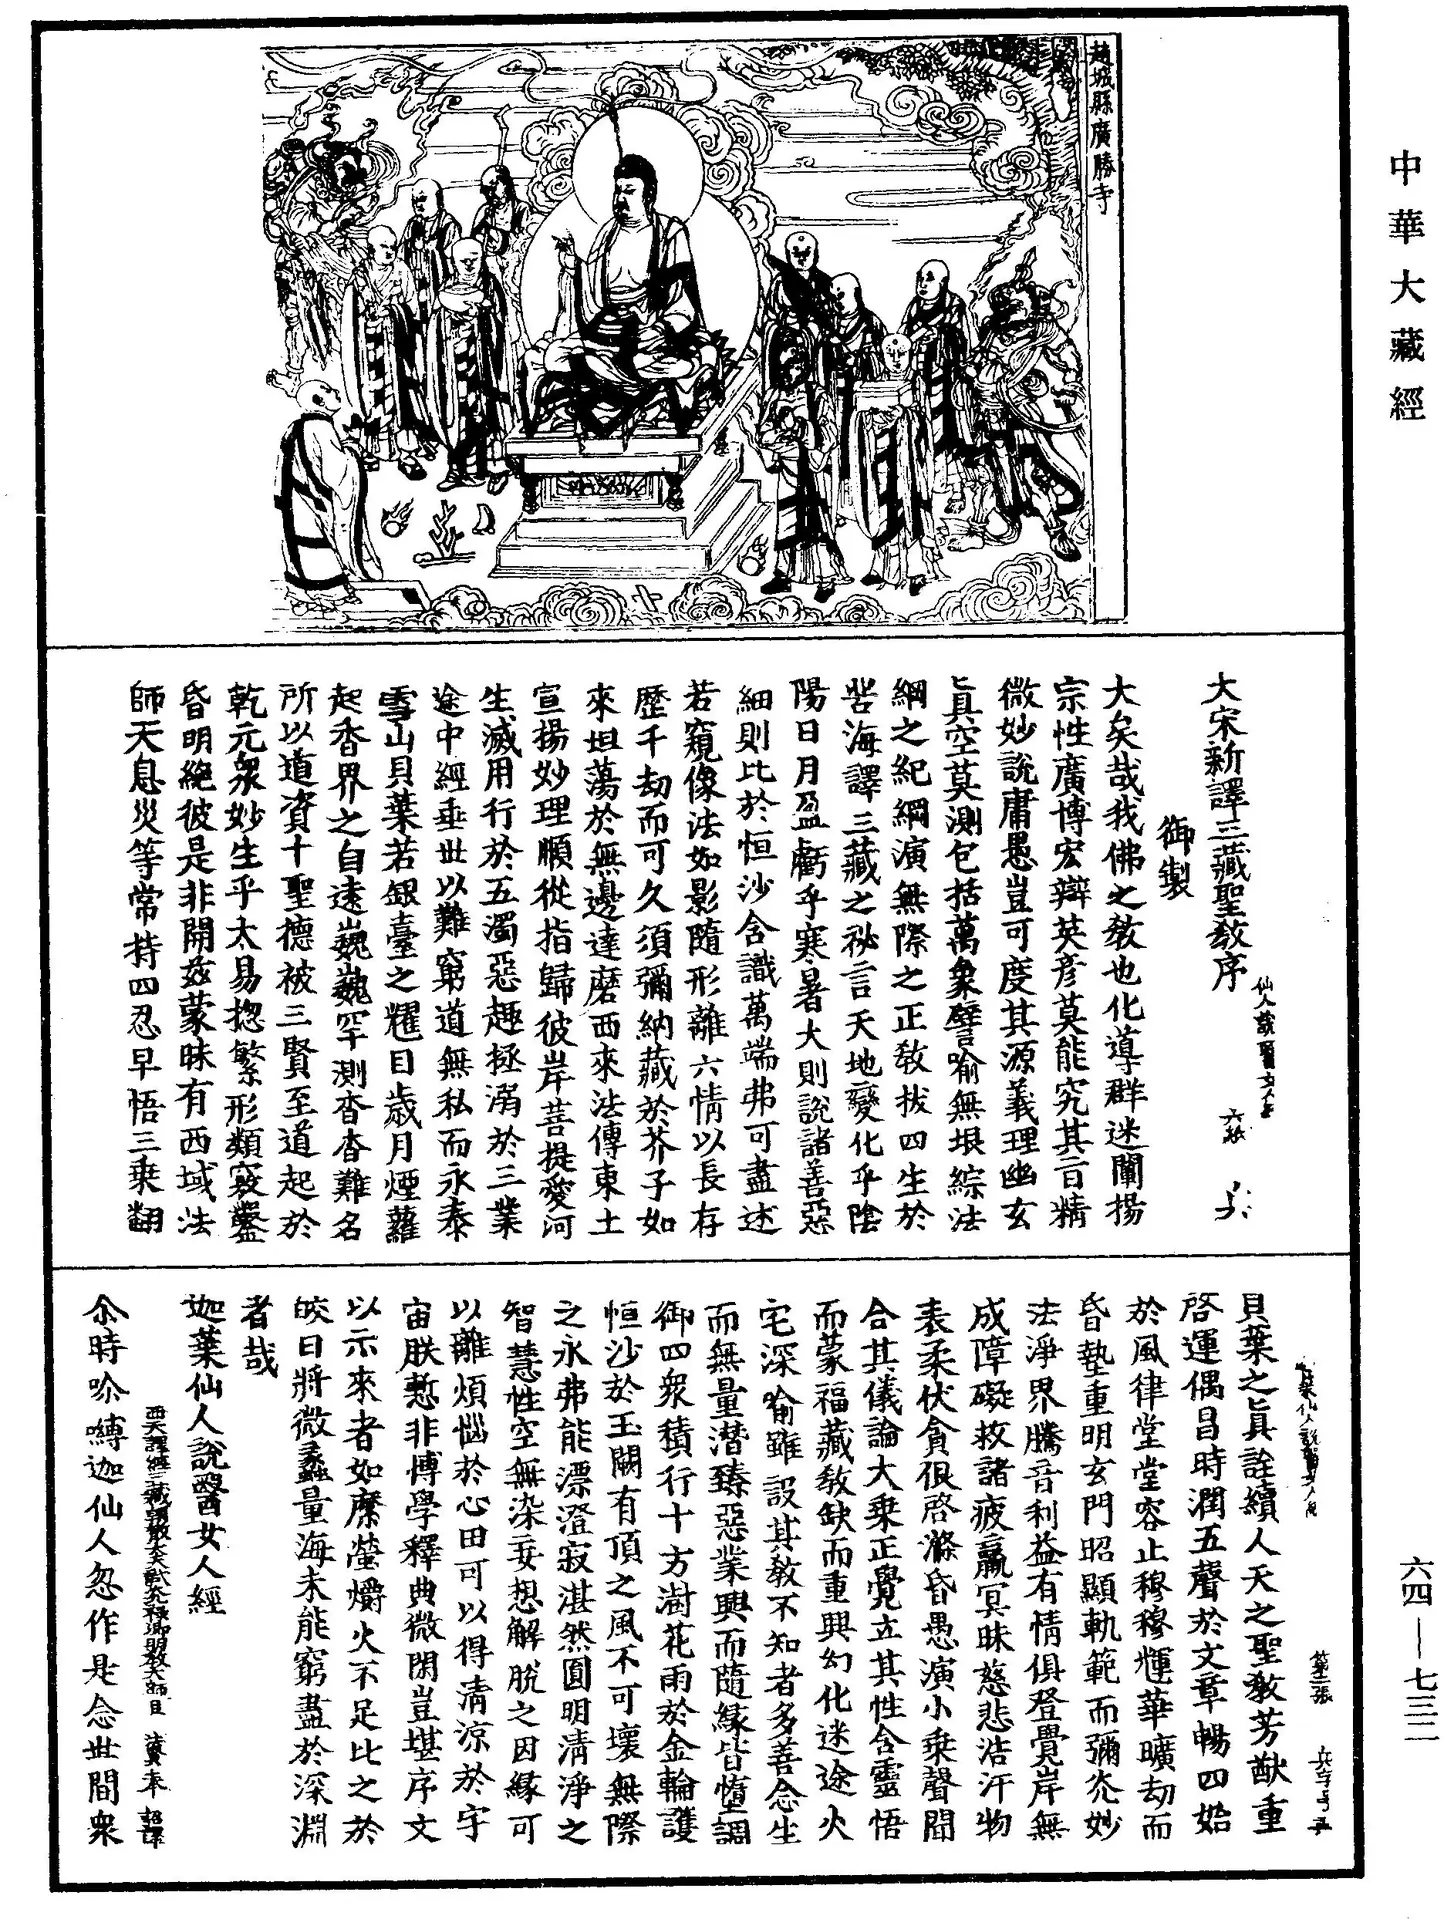 中華大藏經
六四—七三二
趙城縣廣勝寺
大宋新譯三藏聖教序
仙人說醫女人經
六紙
御製
大矣哉我佛之教也化導群迷闡揚
宗性廣博宏辯英彥莫能究其旨精
微妙說庸愚豈可度其源義理幽玄
真空莫測包括萬象譬喻無垠綜法
網之紀綱演無際之正教拔四生於
苦海譯三藏之祕言天地變化乎陰
陽日月盈虧乎寒暑大則說諸善惡
細則比於恒沙含識萬端弗可盡述
若窺像法如影隨形離六情以長存
歷千劫而可久須彌納藏於芥子如
來坦蕩於無邊達磨西來法傳東土
宣揚妙理順從指歸彼岸菩提愛河
生滅用行於五濁惡趣拯溺於三業
途中經垂世以難窮道無私而永泰
雪山貝葉若銀臺之耀目歲月煙蘿
起香界之自遠巍巍罕測杳杳難名
所以道資十聖德被三賢至道起於
乾元衆妙生乎太易揔繁形類竅鑿
昏明絕彼是非開茲蒙昧有西域法
師天息災等常持四忍早悟三乘翻
貝葉之真詮續人天之聖教芳猷重
啓運偶昌時潤五聲於文章暢四始
於風律堂堂容止穆穆輝華曠劫而
昏墊重明玄門昭顯軌範而彌光妙
法淨界騰音利益有情俱登覺岸無
成障礙救諸疲羸冥昧慈悲浩汗物
表柔伏貪很啓滌昏愚演小乘聲聞
合其儀論大乘正覺立其性含靈悟
而蒙福藏教缺而重興幻化迷途火
宅深喻雖設其教不知者多善念生
而無量潛臻惡業興而隨緣皆墮調
御四衆積行十方澍花雨於金輪護
恒沙於玉闕有頂之風不可壞無際
之永弗能漂澄寂湛然圓明清淨之
智慧性空無染妄想解脫之因緣可
以離煩惱於心田可以得清涼於宇
宙朕慙非博學釋典微閑豈堪序文
以示來者如縻螢爝火不足比之於
皎日將微蠡量海未能窮盡於深淵
者哉
迦葉仙人說醫女人經
西天譯經三藏朝散大夫試光祿卿明教大師臣法賢奉詔譯
尒時哆嚩迦仙人忽作是念世間衆